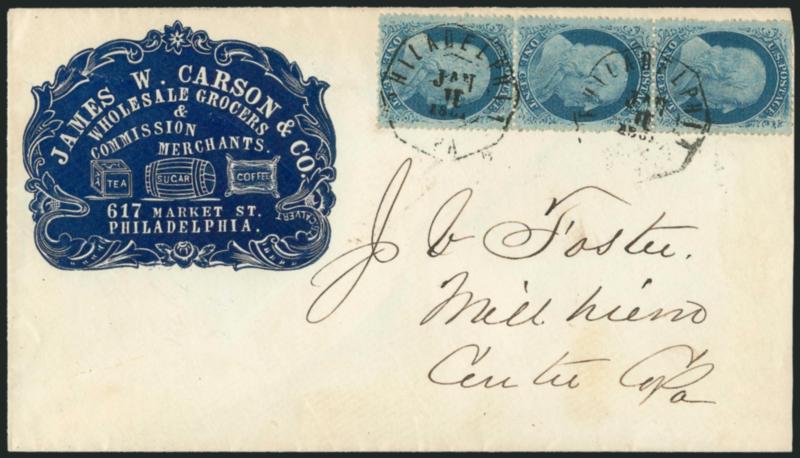 JAMES W. CARSON & CO.
WHOLESALE GROCERS
&
COMMISSION
MERCHANTS.
TEA
SUGAR
COFFEE
617 MARKET ST.
PHILADELPHIA.
CALVERT
PHILADELPHIA
JAN
11
PA
PHILADELPHIA
JAN
11
U.S. POSTAGE
ONE CENT
U.S. POSTAGE
ONE CENT
U.S. POSTAGE
ONE CENT
J W Foster.
Millhiem
Centre Co Pa